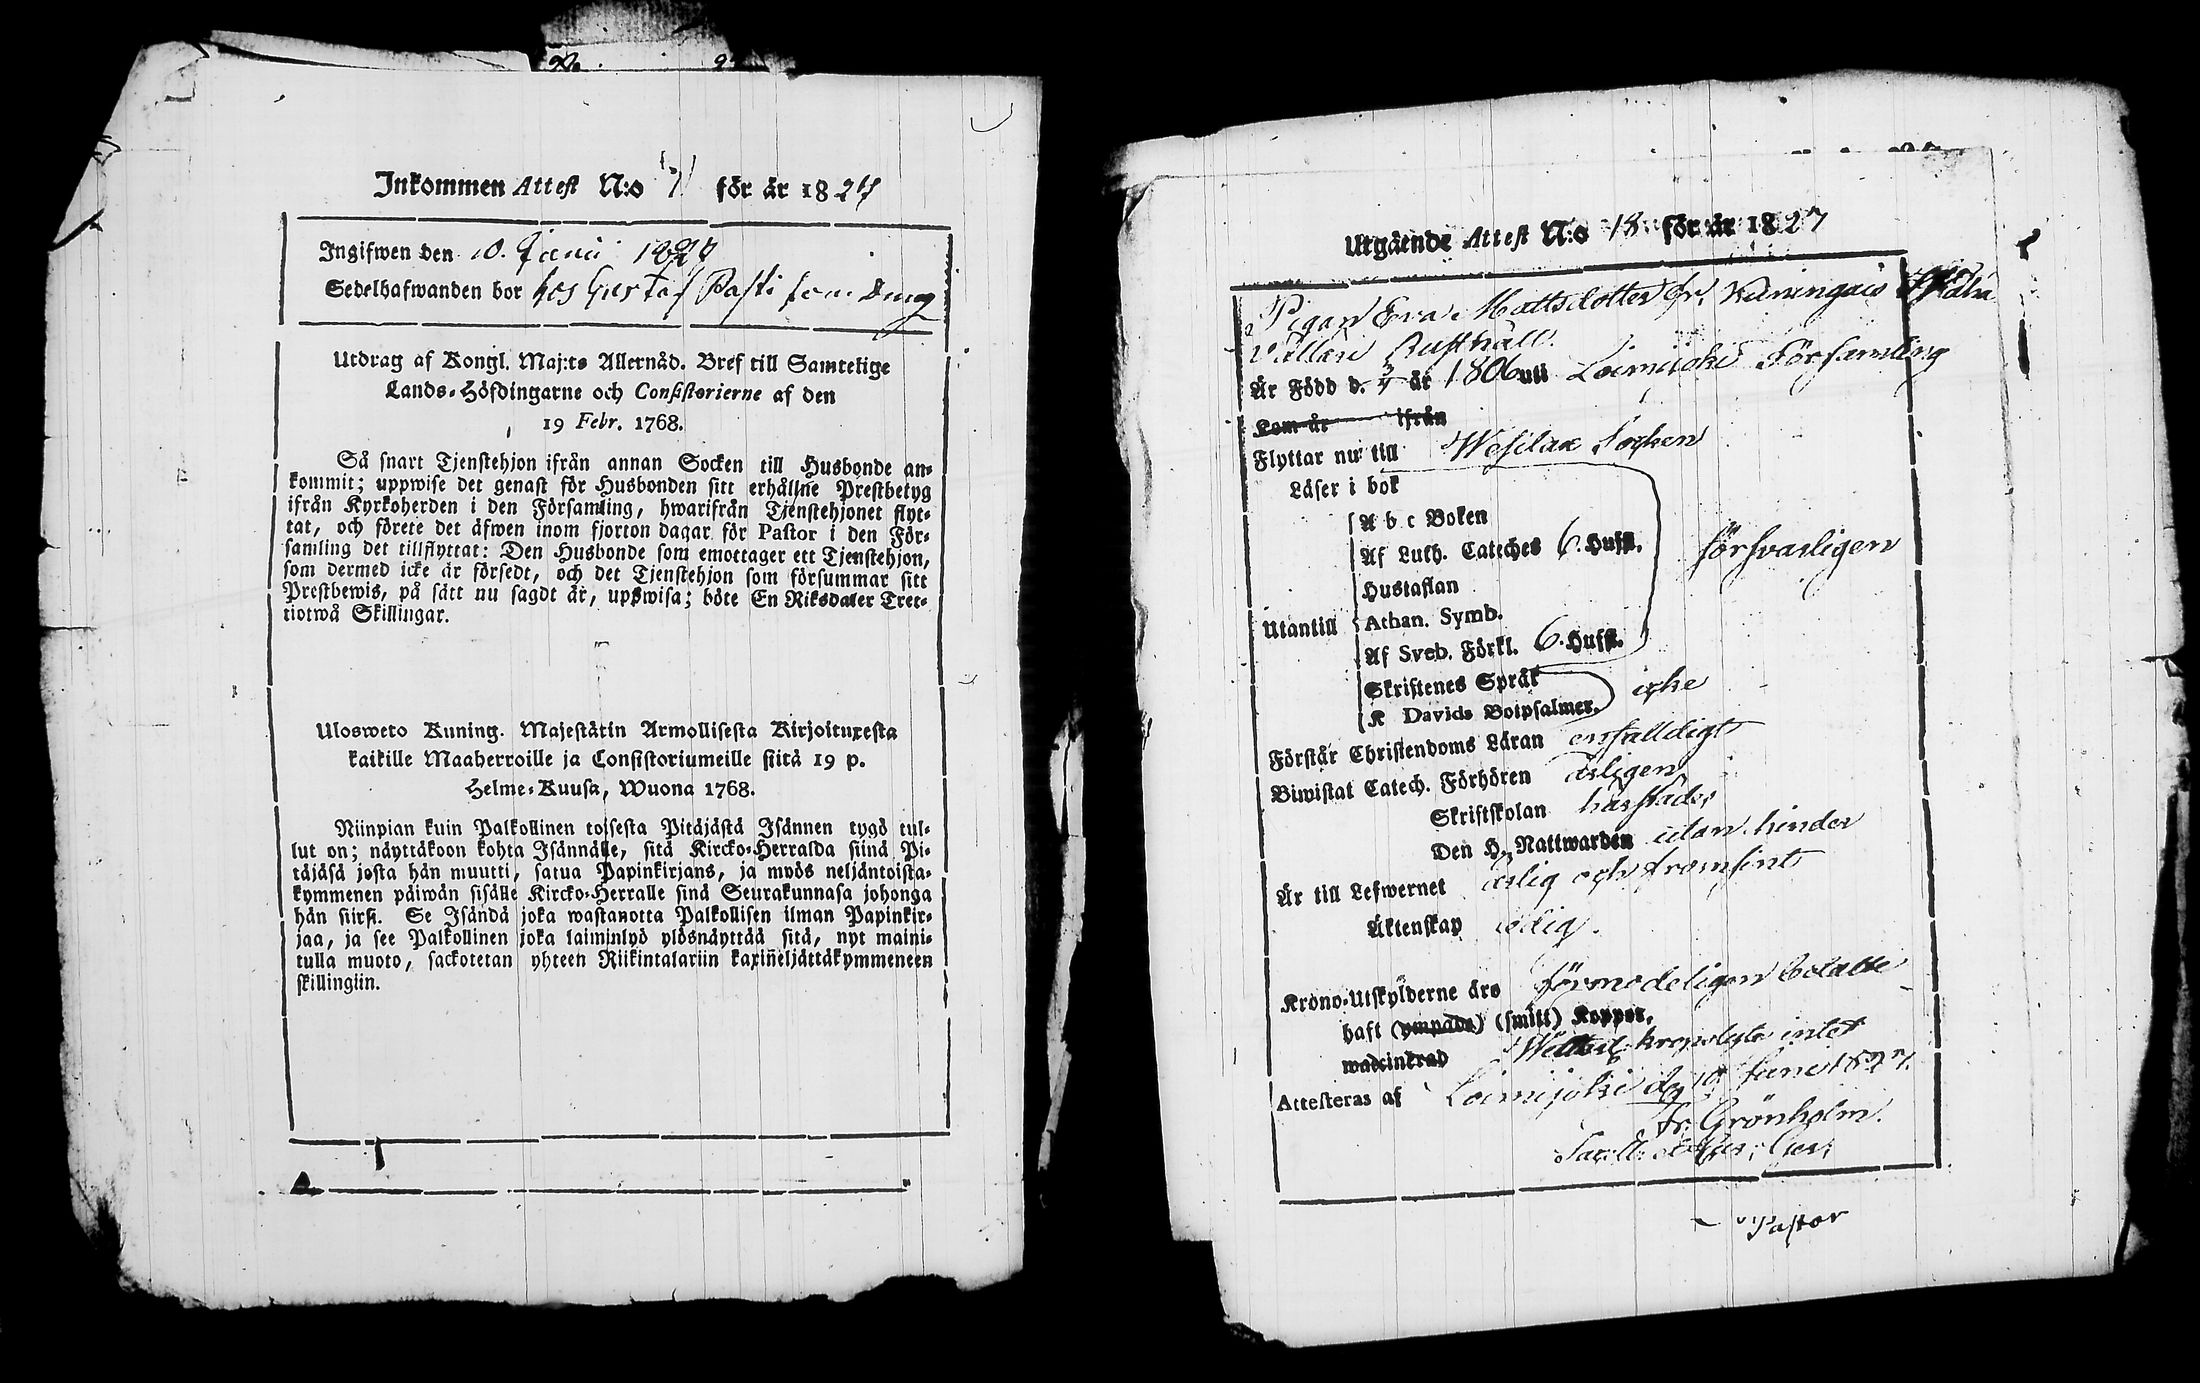 Inkommen Attest N:o 7 för år 1827
Ingifwen den 10. Junii 1827
Sedelhafwanden bor hos Gustaf Pasti som
Utdrag af Kongl. Maj:ts Allernåd. Bref till Samtelige
Lands-Höfdingarne och Consistorierne af den
19 Febr. 1768.
Så snart Tjenstehjon ifrån annan Socken till Husbonde an-
kommit; uppwise det genast för Husbonden sitt erhållne Prestbetyg
ifrån Kyrkoherden i den Församling, hwarifrån Tjenstehjonet flyt-
tat, och förete det äfwen inom fjorton dagar för Pastor i den För-
samling det tillflyttat: Den Husbonde som emottager ett Tjenstehjon,
som dermed icke är försedt, och det Tjenstehjon som försummar sitt
Prestbewis, på sätt nu sagdt är, uppwisa; böte En Riksdaler Tret-
tiotwå Skillingar.
Ulosweto Kuning. Majestätin Armollisesta Kirjoituxesta
kaikille Maaherroille ja Consistoriumeille siitä 19 p.
Helme-Kuusa, Wuona 1768.
Niinpian kuin Palkollinen toisesta Pitäjästä Isännen tygö tul-
lut on; näyttäkoon kohta Isännälle, sitä Kircko-Herralda siinä Pi-
täjäsä josta hän muutti, satua Papinkirjans, ja myös neljäntoista-
kymmenen päiwän sisälle Kircko-Herralle sinä Seurakunnasa johonga
hän siirsi. Se Isändä joka wastanotta Palkollisen ilman Papinkir-
jaa, ja see Palkollinen joka laiminlyö ylösnäyttää sitä, nyt maini-
tulla muoto, sackotetan yhteen Riikintalariin kaxineljättäkymmeneen
skillingiin.
Utgående Attest N:o 18 för år 1827
Pigan Eva Mattsdotter fr. Kuningais
Rusthåll.
Är Född d. 3/4 år 1806 uti Loimijoki Församling
Kom år ifrån
Flyttar nu till Wesilax Socken
Läser i bok
A b c Boken
Af Luth. Cateches 6. Hufst. försvarligen
Hustaflan
Utantill Athan. Symb.
Af Sveb. Förkl. 6. Hufst.
Skriftenes Språk icke
K Davids Botpsalmer.
Förstår Christendoms Läran enfalldigt
Biwistat Catech. Förhören årligen
Skriftskolan härstädes
Den H. Nattwarden utan hinder
Är till Lefwernet ärlig och fromsint
Äktenskap ledig.
Krono-Utskylderne äro förmodeligen betalte
haft (ympade) (smitt) Koppor.
waccinerad intet
Attesteras af Loimijoki den 10 Junii 1827.
Fr. Grönholm.
Pastor